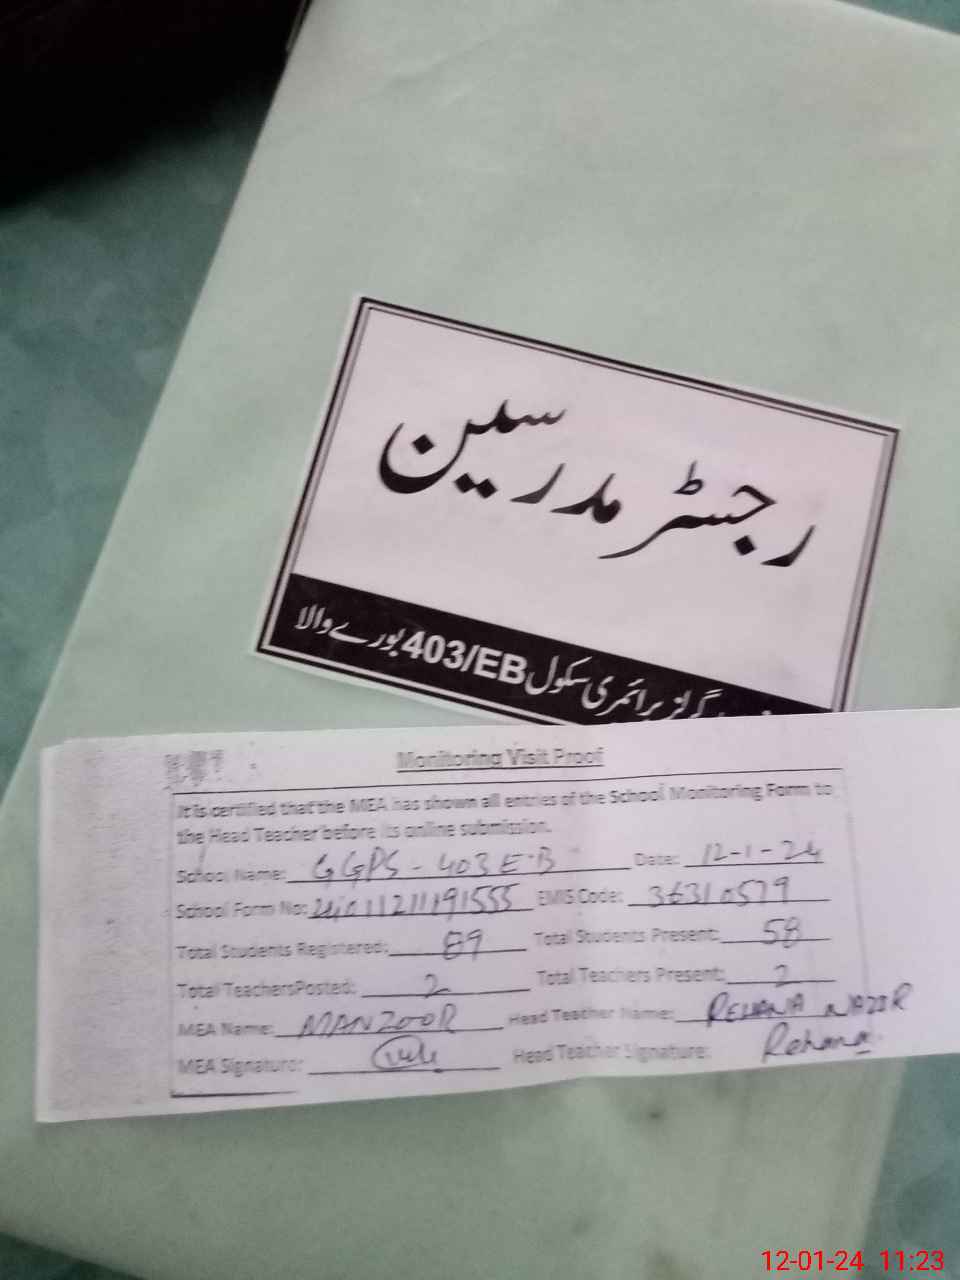 رجسٹر مدرسین
گرلز پرائمری سکول 403/EB بورے والا
Monitoring Visit Proof
It is certified that the MEA has shown all entries of the School Monitoring Form to
the Head Teacher before its online submission.
School Name: GGPS - 403 E-B Date: 12-1-24
School Form No: EMIS Code: 36310579
Total Students Registered: 89 Total Students Present: 58
Total TeachersPosted: 2 Total Teachers Present: 2
MEA Name: MANZOOR Head Teacher Name: REHANA NAZIR
MEA Signature: Head Teacher Signature: Rehana
12-01-24 11:23